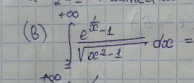 (B) \int_{3}^{+\infty} \frac{e^{\frac{1}{x}}-1}{\sqrt{x^2-1}} dx =
+∞